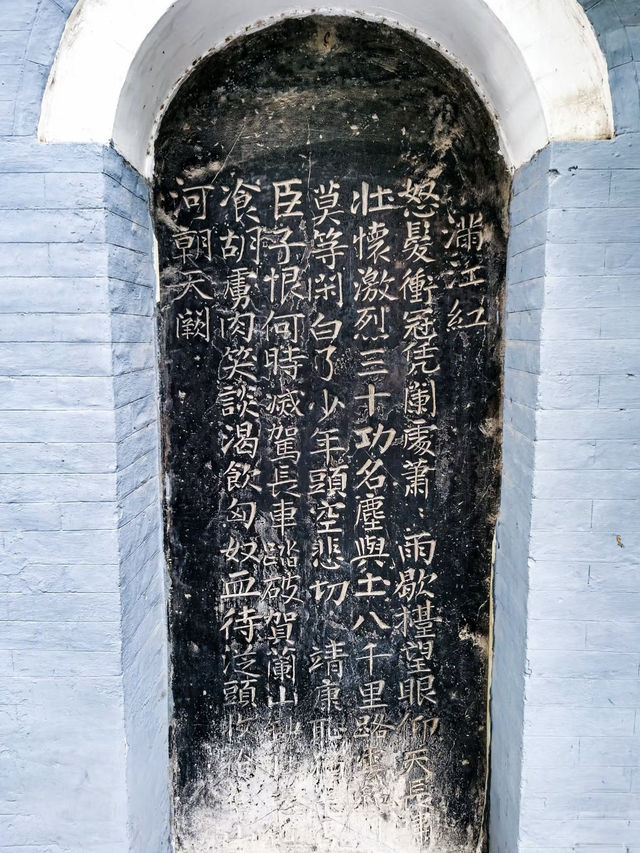 滿江紅
怒髮衝冠凭闌處蕭：雨歇擡望眼仰天長嘯
壯懷激烈三十功名塵與土八千里路雲
莫等閑白了少年頭空悲切 靖康恥
臣子恨何時滅駕長車踏破賀蘭山
飡胡虜肉笑談渴飲匈奴血待從頭收拾
河朝天闕